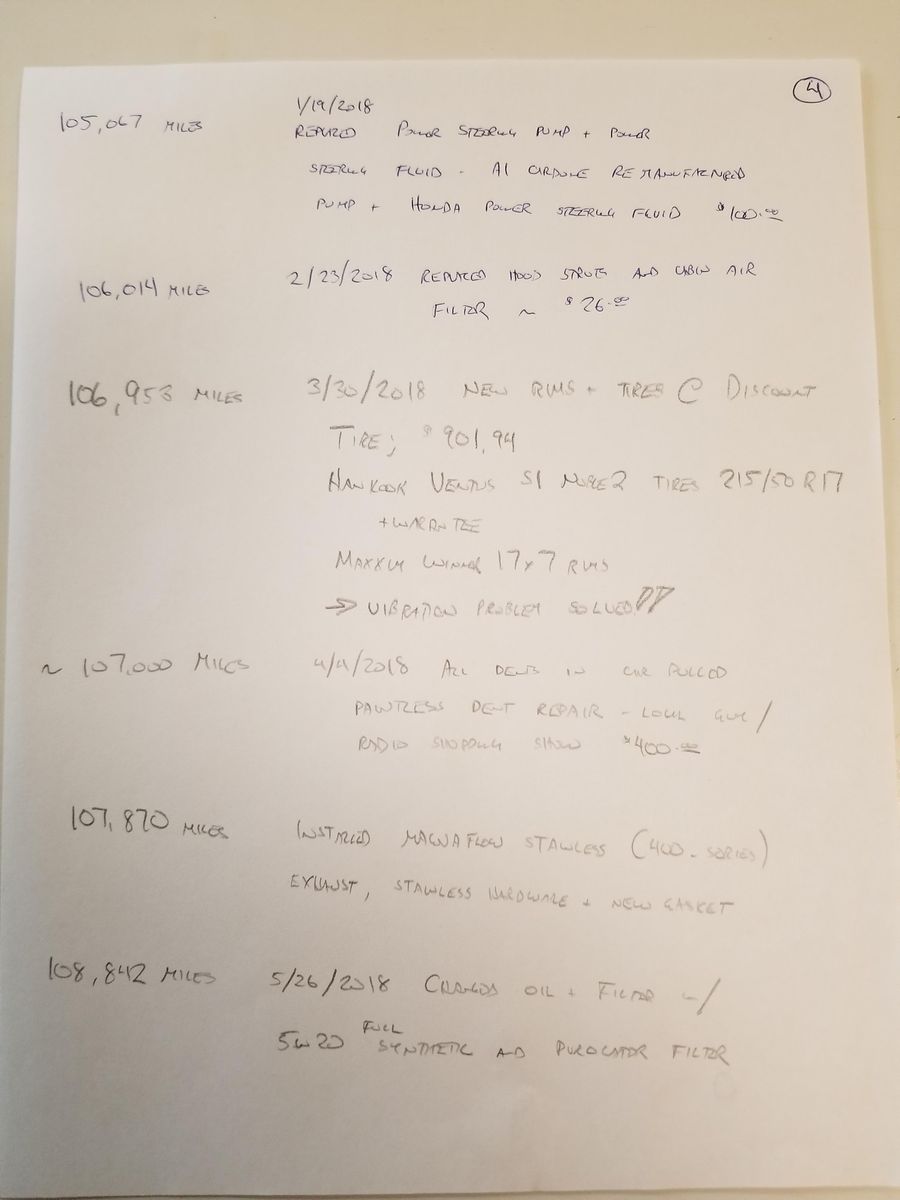 4
1/19/2018
105,067 MILES REPLACED POWER STEERING PUMP + POWER
STEERING FLUID - A1 CARDONE REMANUFACTURED
PUMP + HONDA POWER STEERING FLUID $100.00
106,014 MILES 2/23/2018 REPLACED HOOD STRUTS AND CABIN AIR
FILTER ~ $26.00
106,953 MILES 3/30/2018 NEW RIMS + TIRES @ DISCOUNT
TIRE; $901,94
HANKOOK VENTUS S1 NOBLE2 TIRES 215/50 R17
+ WARANTEE
MAXXIM WINNER 17x7 RIMS
→ VIBRATION PROBLEM SOLVED!!
~ 107,000 MILES 4/4/2018 ALL DENTS IN CAR PULLED
PAINTLESS DENT REPAIR - LOCAL GUY /
RADIO SHOPPING SHOW $400.00
107,870 MILES INSTALLED MAGNAFLOW STAINLESS (400-SERIES)
EXHAUST, STAINLESS HARDWARE + NEW GASKET
108,842 MILES 5/26/2018 CHANGED OIL + FILTER w/
5W20 FULL SYNTHETIC AND PUROLATOR FILTER